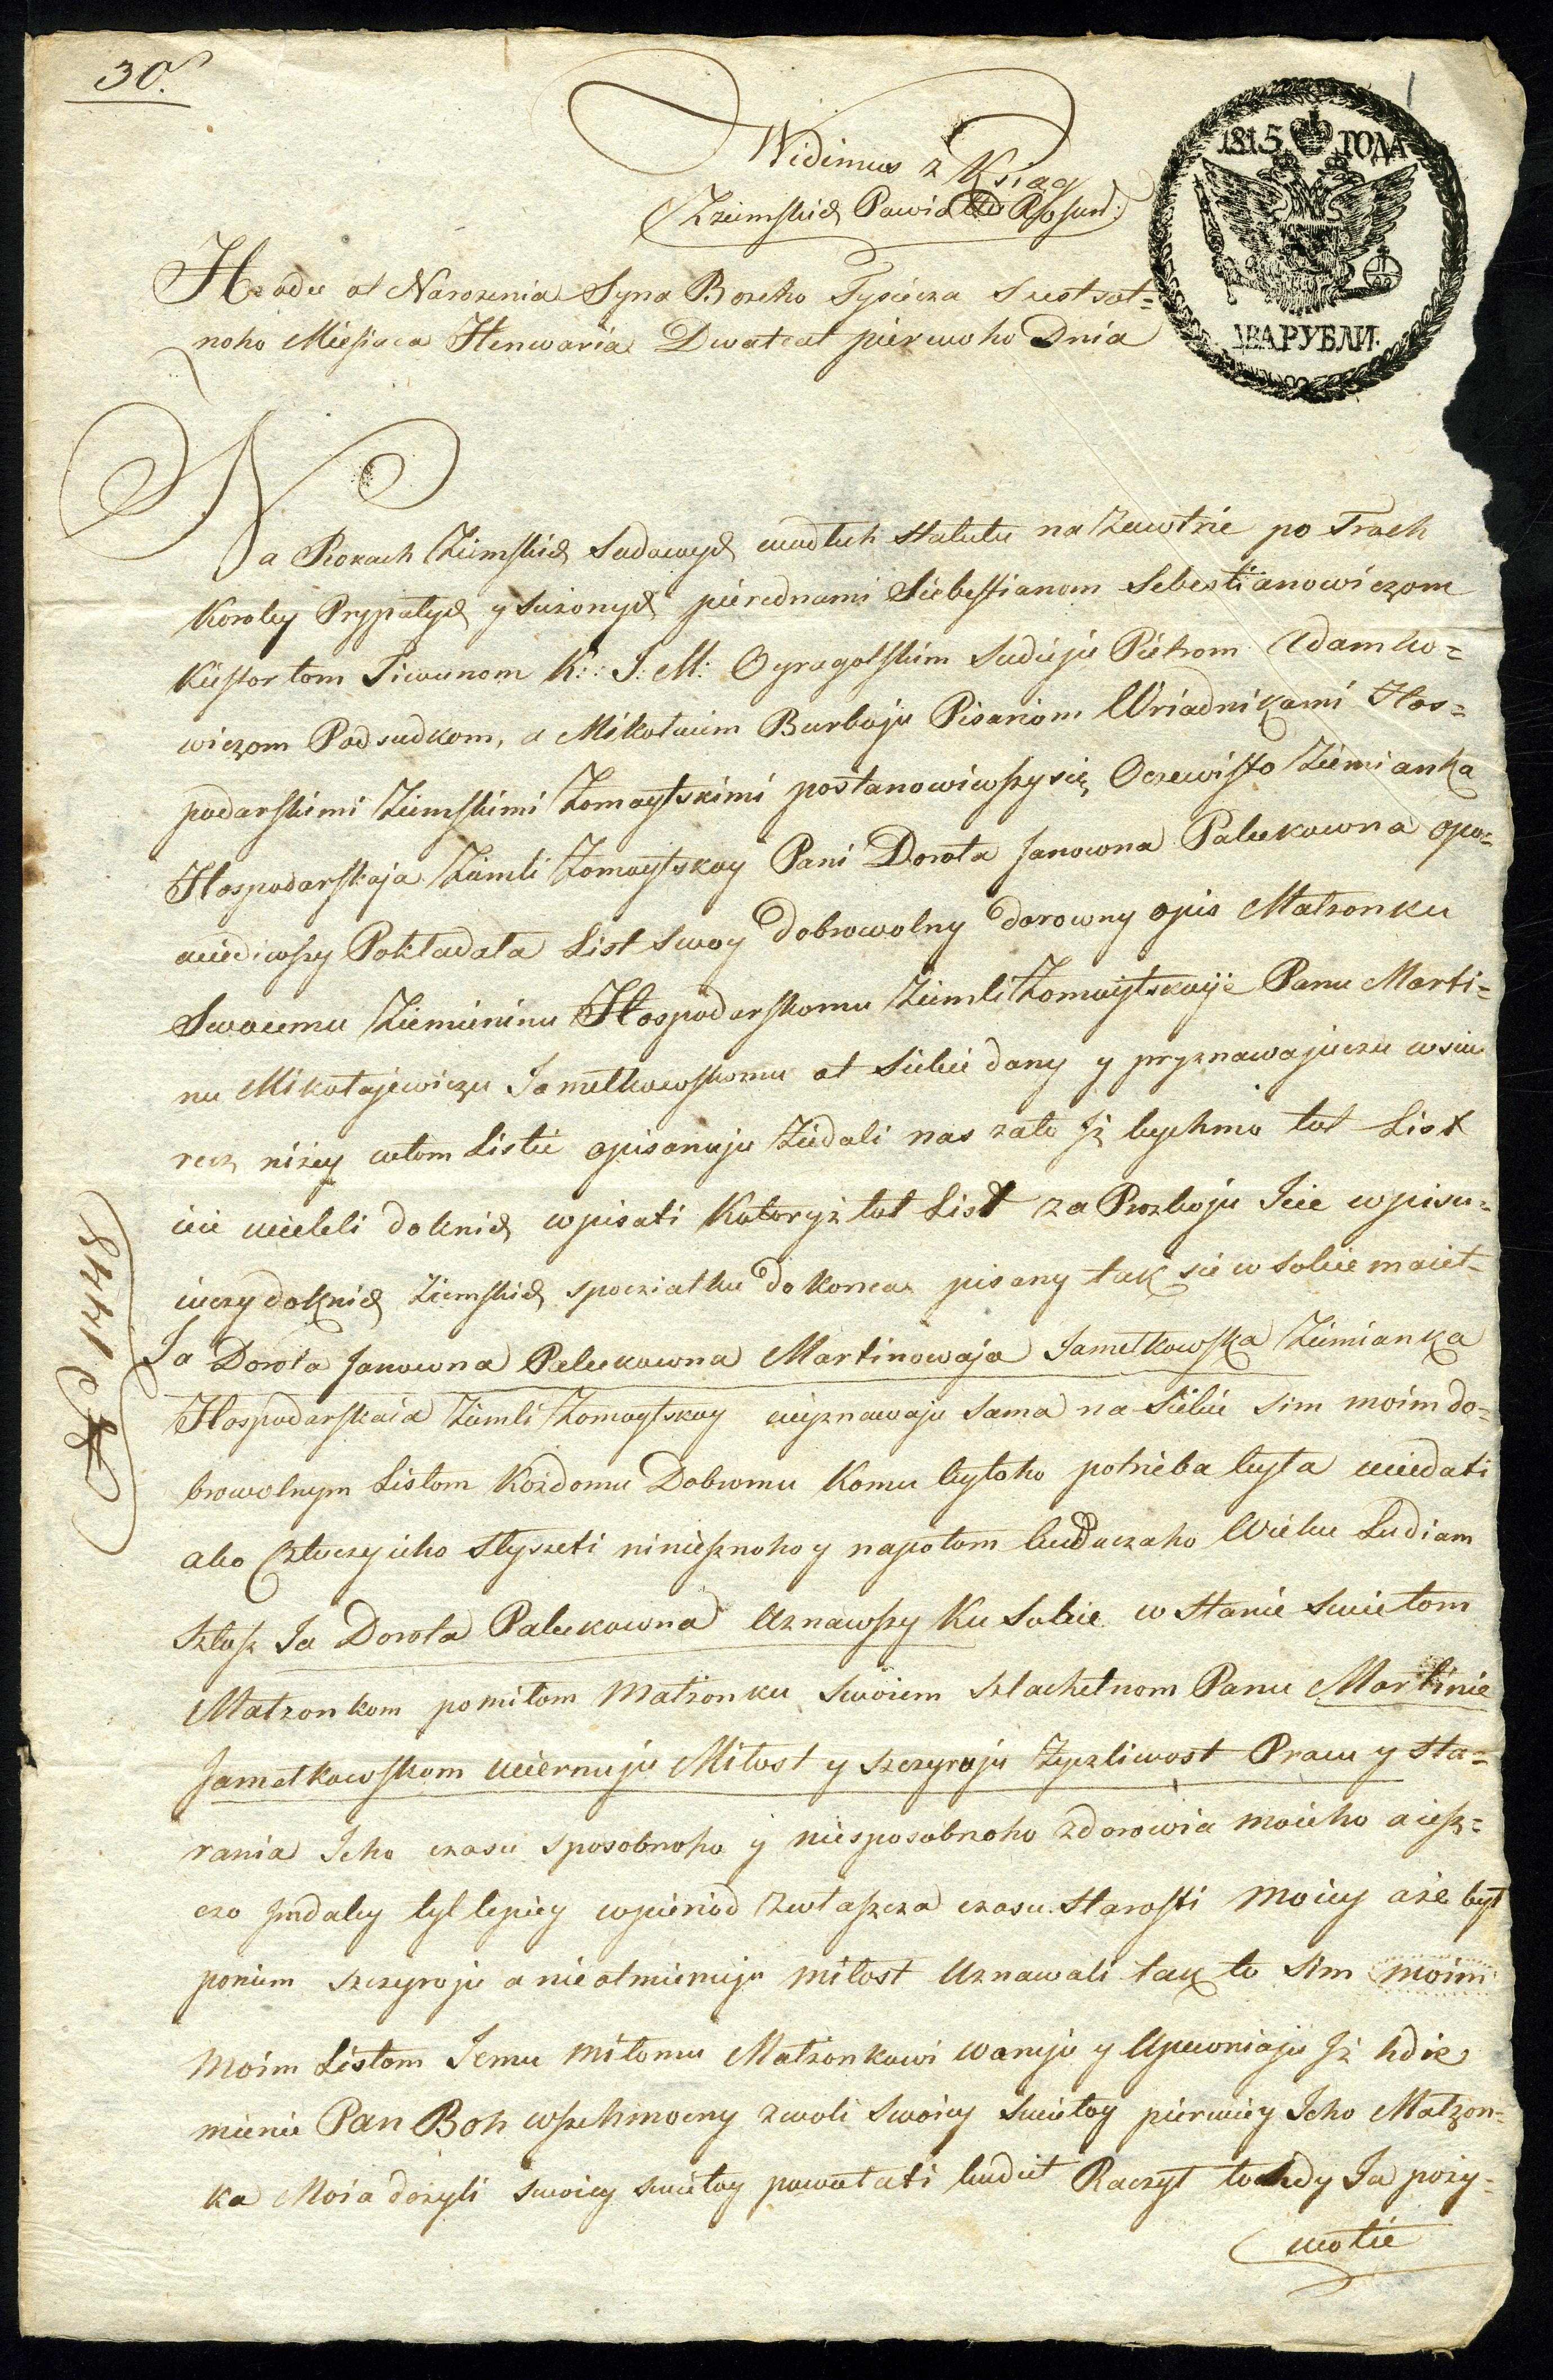 30.
1
Widimus z Ksiąg
Ziemskich Powiatu Rosień:
1815 ГОДА
ДВА РУБЛИ.
Hodu ot Narozenia Syna Bozeho Tysiecza Szestsot=
noho Miesiaca Henwaria Dwatcat pierwoho Dnia
Na Rokach Ziemskich Sudowych wedluh Statutu na zawtrie po Troch
Koroley Prypalych y Sużonych pierednami Siebestianom Sebestianowiczom
Kiestortom Tiwunom K: J: M: Oyragolskim Sudieju Pietrom Adamko=
wiczom Podsudkom, a Mikołaiem Burboju Pisariom Wriadnikami Hos=
podarskimi Ziemskimi Zomoytskimi postanowiwszysię Oczewisto Ziemianka
Hospodarskaja Ziemli Zomoytskoy Pani Dorota Janowna Palukowna opo=
wiediwszy Pokładała List swoy dobrowolny darowny opis Małżonku
Swoiemu Ziemieninu Hospodarskomu Ziemli Zomoytskoye Panu Marti=
nu Mikołajewiczu Jamełkowskomu ot Siebie dany y pryznawajuczu wsiu
recz niżey wtom Listie opisanuju Ziedali nas zato Jż bychmo tot List
ieie wieleli doknich wpisati Kotoryż tot List za Prozboju Ieie wpisu=
iuczy doknich Ziemskich spocziatku do konca pisany tak się w sobie maiet
Ia Dorota Janowna Palukowna Martinowaja Jamełkowska Ziemianka
Hospodarskaia Ziemli Zomoytskoy wyznawaju sama na siebie sim moim do=
browolnym Listom Kożdomu Dobromu Komu bytoho potrieba była wiedati
abo Cztuczy ieho słyszeti niniesznoho y napotom buduczoho Wieku Ludiam
Sztosz Ja Dorota Palukowna Uznawszy Ku Sobie w Stanie Swietom
Małżonkom pomiłom małżonku swoiem szlachetnom Panu Martinie
Jamełkowskom wiernuju Miłost y szczyruju Życzliwost Pracu y sta=
rania Jeho czasu sposobnoho y niesposobnoho zdorowia moieho aiesz=
czo Jmdaley tył lepiey wpieriod zwłaszcza czasu Starosti moiey aże był
poniem szczyruju a nieotmiennuju miłost Uznawali tak to Sim moim
moim Listom Jemu miłomu Małżonkowi waruju y Upewniaju Jż hdie
mienie Pan Boh wszehmocny zwoli swoiey swietoy pierwiey Jeho Małżon=
ka Moia dozyli swoiey swietoy powołati budiet Raczył tohdy Ja poży=
wotie
№ 1448